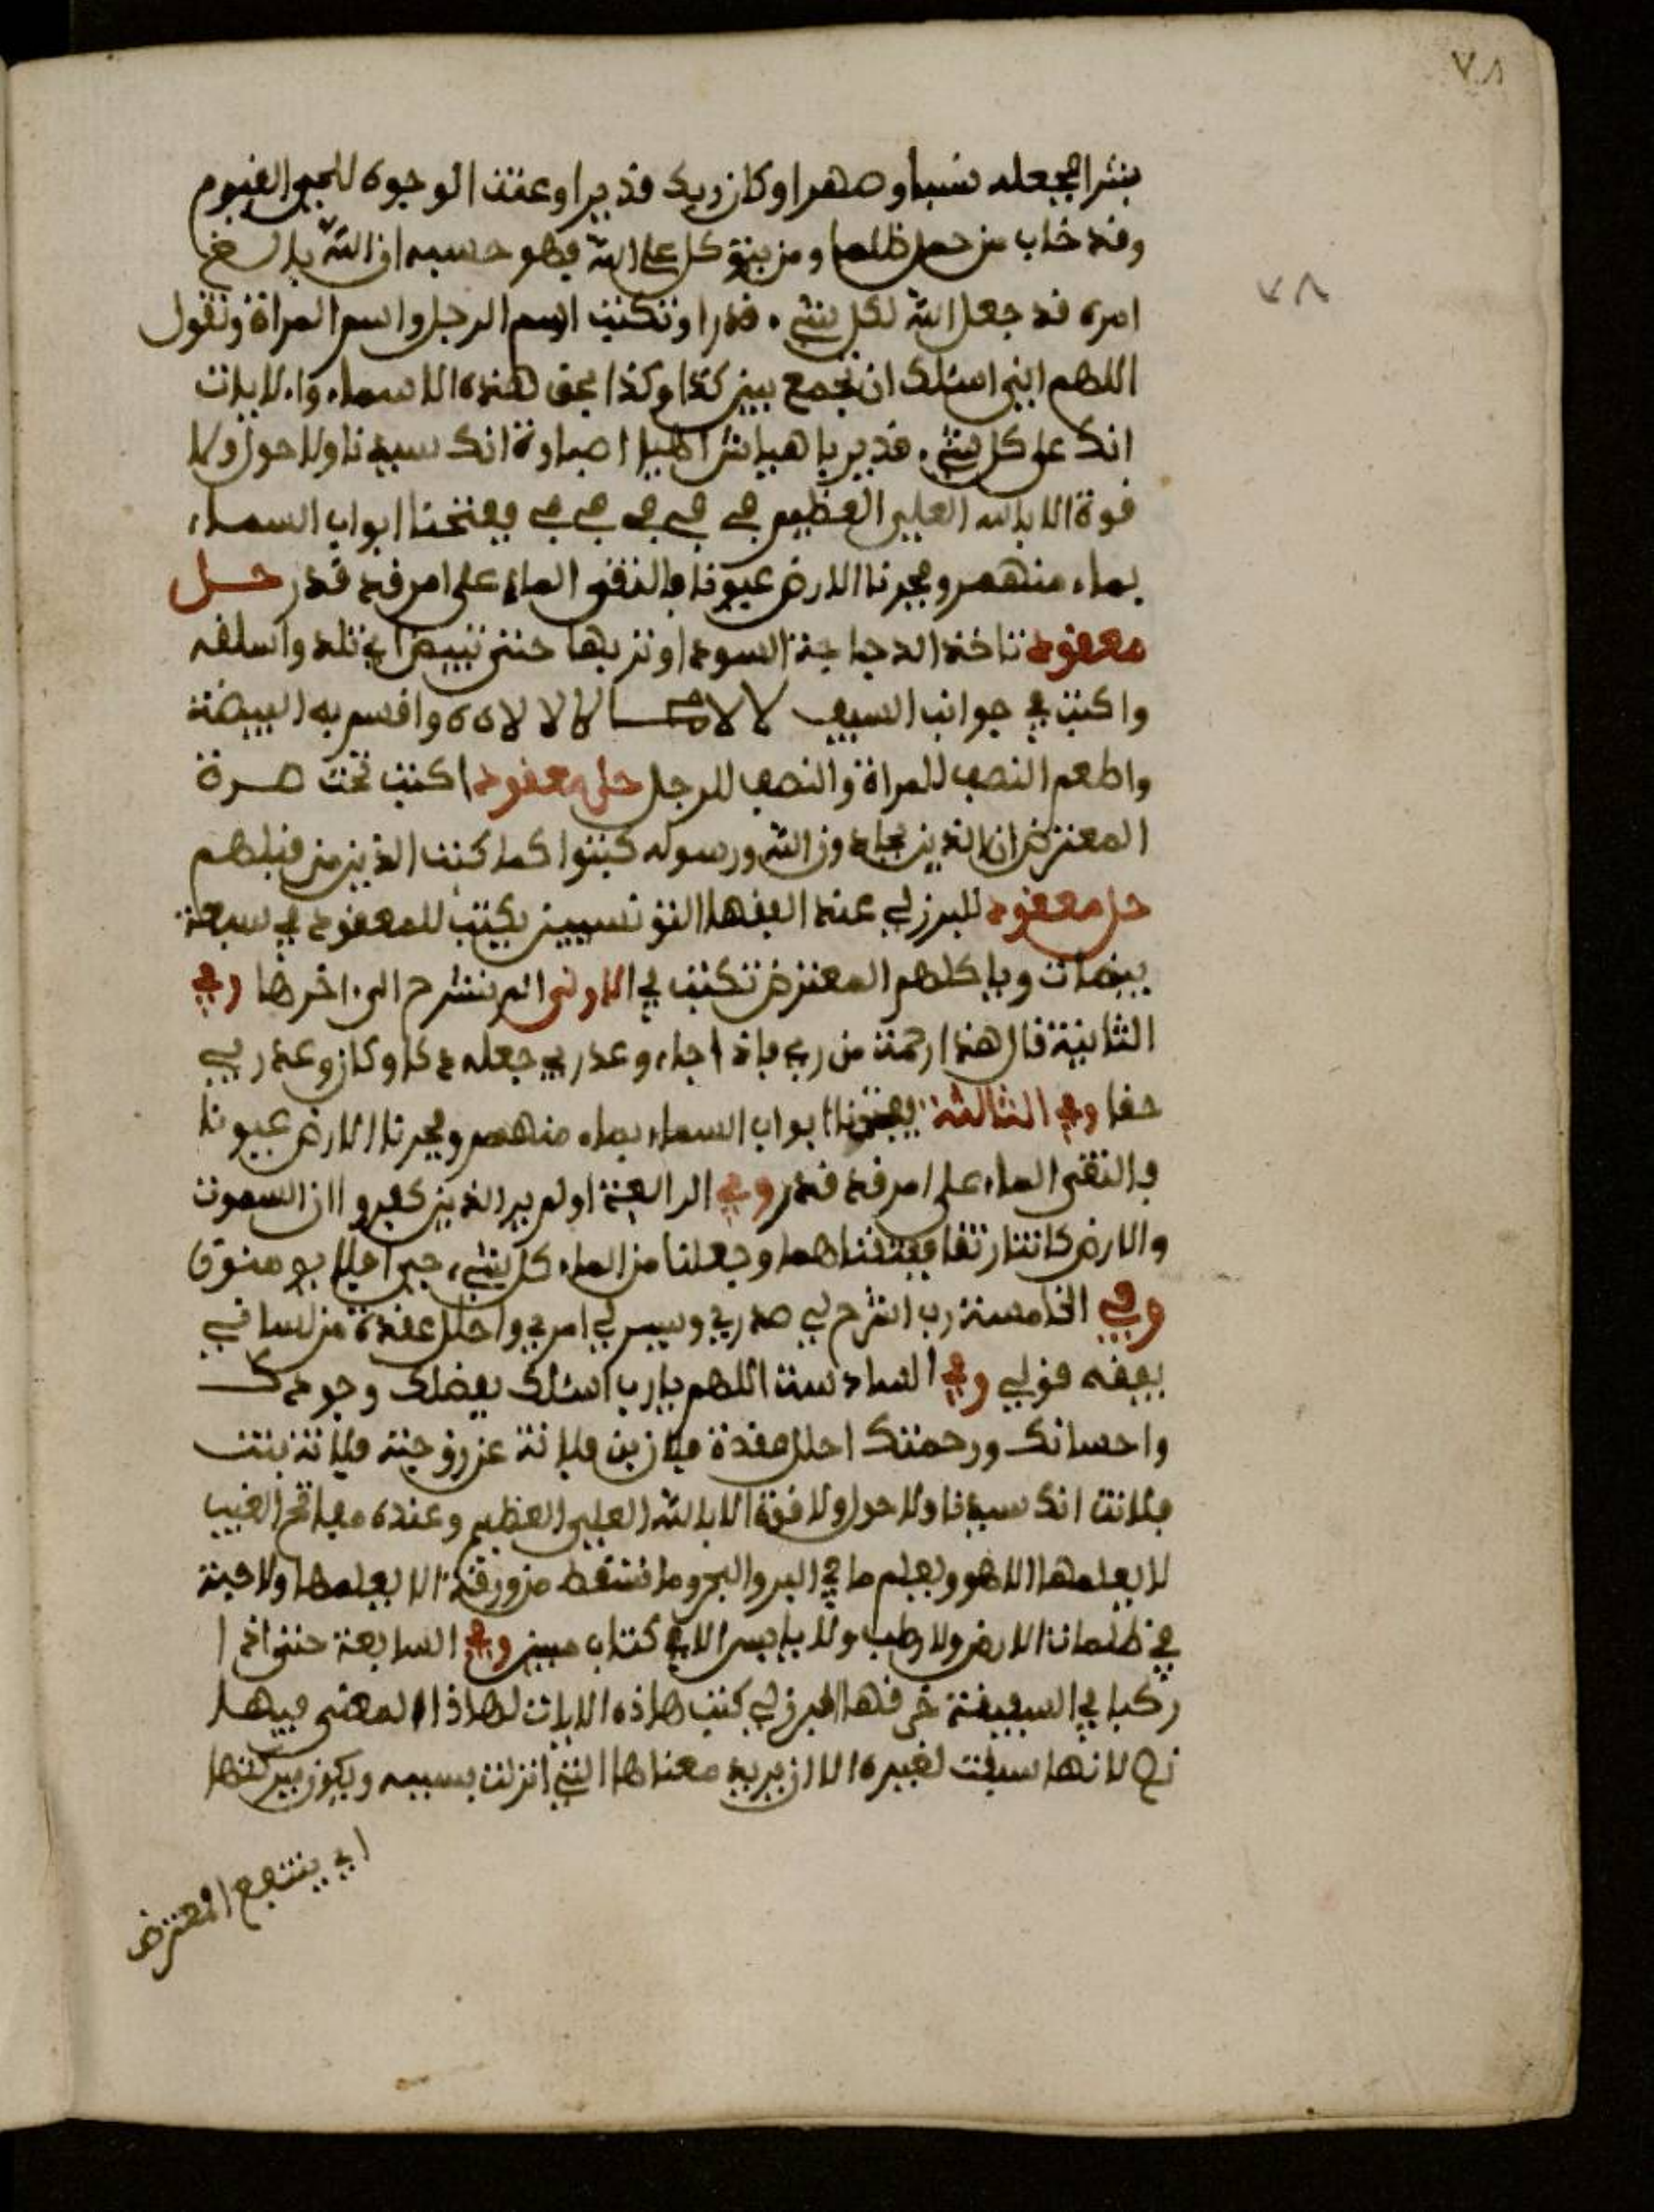 ٧٨
بشرا فجعله نسبا وصهرا وكان ربك قديرا وعنت الوجوه للحي القيوم
وقد خاب من حمل ظلما ومن يتوكل على الله فهو حسبه ان الله بالغ
٧٨
امره قد جعل الله لكل شيء قدرا وتكتب اسم الرجل واسم المراة وتقول
اللهم اني اسئلك ان تجمع بين كذا وكذا بحق هذه الاسماء والايات
انك على كل شيء قدير يا هيا شراهيا اصباوة انك سيدنا ولا حول ولا
قوة الا بالله العلي العظيم ففتحنا ابواب السماء
بماء منهمر وفجرنا الارض عيونا فالتقى الماء على امر قد قدر حل
معقود تاخذ الدجاجة السودا وتربها حتى تبيض اي تلد واسلقه
واكتب في جوانب السيف لا لا لا لا لاه ه واقسم به البيضة
واطعم النصف للمراة والنصف للرجل حل معقود اكتب تحت صرة
المعترض ان الذين يحادون الله ورسوله كبتوا كما كبت الذين من قبلهم
حل معقود للبرزلي عند الفقها التونسيين يكتب للمعقود في سبعة
بيضات وياكلهم المعترض تكتب في الاولى الم نشرح الى اخرها وفي
الثانية قال هذا رحمة من ربي فاذا جاء وعد ربي جعله دكا وكان وعد ربي
حقا وفي الثالثة ففتحنا ابواب السماء بماء منهمر وفجرنا الارض عيونا
فالتقى الماء على امر قد قدر وفي الرابعة اولم ير الذين كفروا ان السموت
والارض كانتا رتقا ففتقناهما وجعلنا من الماء كل شيء حي افلا يومنون
وفي الخامسة رب اشرح لي صدري ويسر لي امري واحلل عقدة من لساني
يفقه قولي وفي السادسة اللهم يا رب اسئلك بفضلك وجودك
واحسانك ورحمتك احلل عقدة فلان بن فلانة عن زوجته فلانة بنت
فلانة انك سيدنا ولا حول ولا قوة الا بالله العلي العظيم وعنده مفاتح الغيب
لا يعلمها الا هو ويعلم ما في البر والبحر وما تسقط من ورقة الا يعلمها ولا حبة
في ظلمات الارض ولا رطب ولا يابس الا في كتاب مبين وفي السابعة حتى اذا
ركبا في السفينة خرقها البرزلي كتب هاذه الايات لهاذا المعنى فيها
نح لانها سيقت لغيره الا ان يريد معناها التي انزلت بسببه ويكون ببركتها
اي ينتفع المعترض